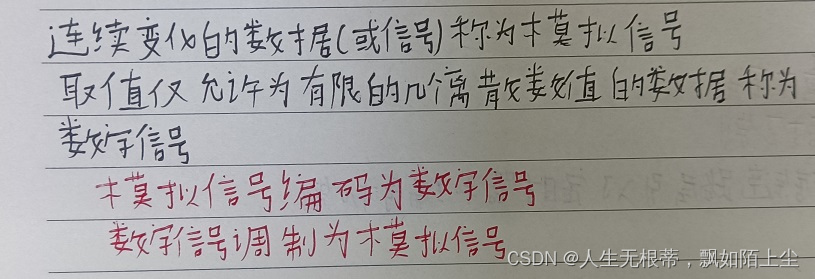 连续变化的数据(或信号)称为模拟信号
取值仅允许为有限的几个离散数值的数据称为
数字信号
模拟信号编码为数字信号
数字信号调制为模拟信号
CSDN @人生无根蒂，飘如陌上尘